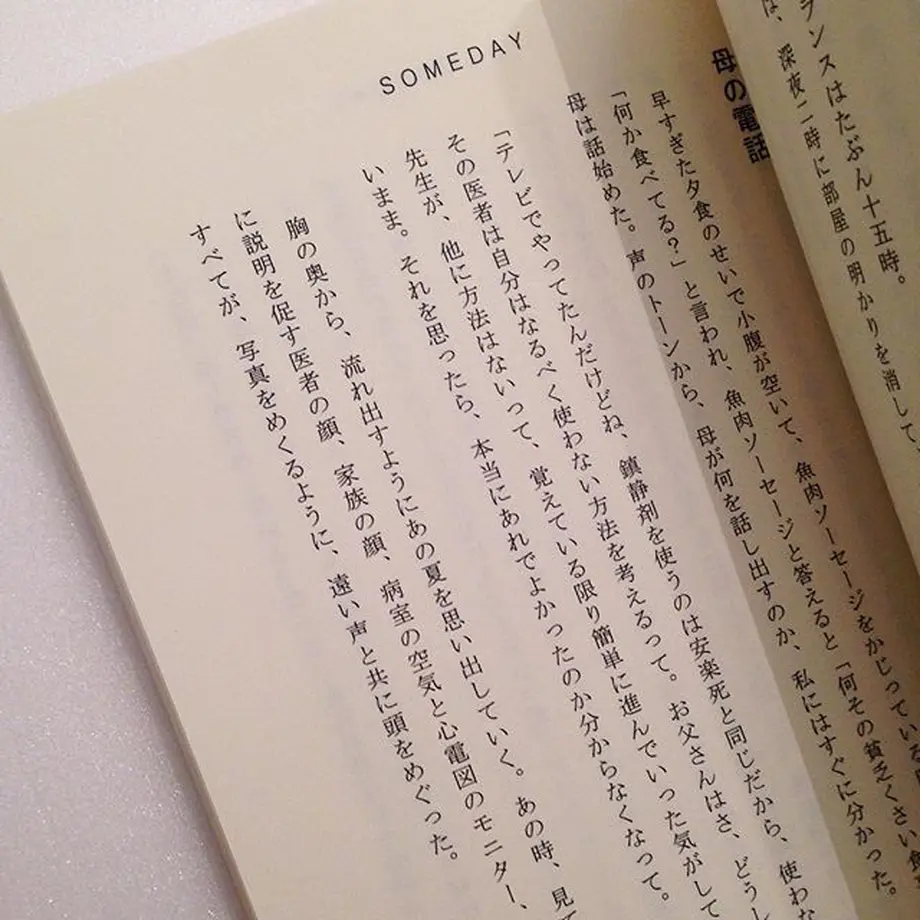 ランスはたぶん十五時。
は、深夜二時に部屋の明かりを消して、
SOMEDAY
母の電話
早すぎた夕食のせいで小腹が空いて、魚肉ソーセージをかじっている
「何か食べてる?」と言われ、魚肉ソーセージと答えると「何その貧乏くさい食
母は話始めた。声のトーンから、母が何を話し出すのか、私にはすぐに分かった。
「テレビでやってたんだけどね、鎮静剤を使うのは安楽死と同じだから、使わな
その医者は自分はなるべく使わない方法を考えるって。お父さんはさ、どうし
先生が、他に方法はないって、覚えている限り簡単に進んでいった気がして
いまま。それを思ったら、本当にあれでよかったのか分からなくなって。
胸の奥から、流れ出すようにあの夏を思い出していく。あの時、見て
に説明を促す医者の顔、家族の顔、病室の空気と心電図のモニター、
すべてが、写真をめくるように、遠い声と共に頭をめぐった。